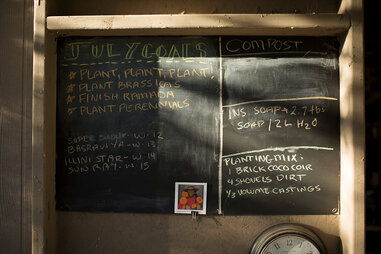 JULY GOALS
* PLANT, PLANT, PLANT!
* PLANT BRASSICAS
* FINISH RAMADA
* PLANT PERENNIALS
W-12
W-13
ILLINI STAR - W-14
SUN RAY - W-15
COMPOST
INS. SOAP = 2.7 tbs
SOAP / 2L H2O
PLANTING MIX:
1 BRICK COCO COIR
4 SHOVELS DIRT
1/3 VOLUME CASTINGS